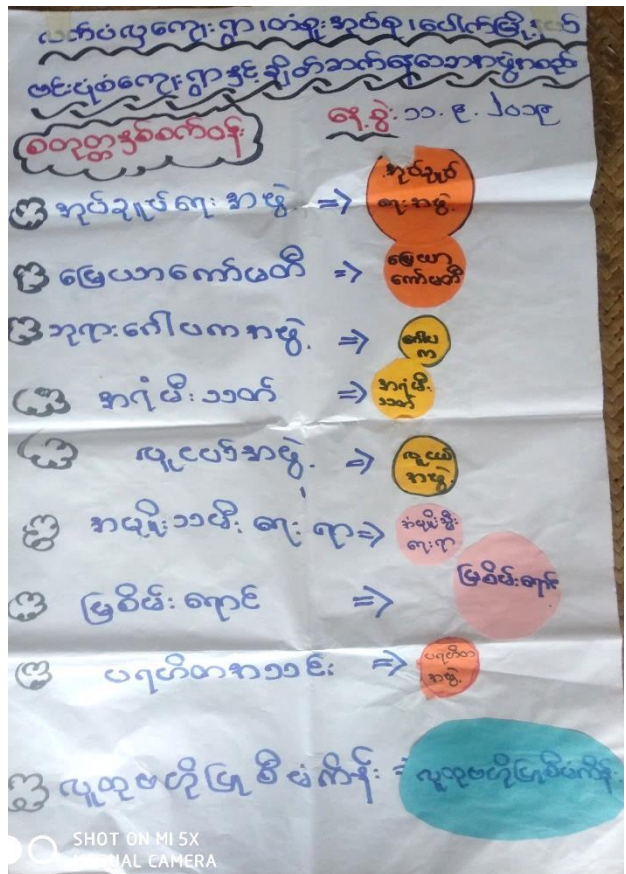 လက်ပံလှကျေးရွာ၊ တံစူးအုပ်စု၊ ပေါက်မြို့နယ်
ဗင်းပုံစံကျေးရွာနှင့်ချိတ်ဆက်နေသောအဖွဲ့အစည်း
စတုတ္ထနှစ်စက်ဝန်း
နေ့စွဲ: ၁၁.၉.၂၀၁၉
အုပ်ချုပ်ရေးအဖွဲ့ => အုပ်ချုပ်ရေးအဖွဲ့
မြေယာကော်မတီ => မြေယာကော်မတီ
ဘုရားဂေါပကအဖွဲ့ => ဂေါပက
အရံမီးသတ် => အရံမီးသတ်
လူငယ်အဖွဲ့ => လူငယ်အဖွဲ့
အမျိုးသမီးရေးရာ => အမျိုးသမီးရေးရာ
မြစိမ်းရောင် => မြစိမ်းရောင်
ပရဟိတအသင်း => ပရဟိတအဖွဲ့
လူထုဗဟိုပြုစီမံကိန်း = လူထုဗဟိုပြုစီမံကိန်း
SHOT ON MI 5X
MI DUAL CAMERA